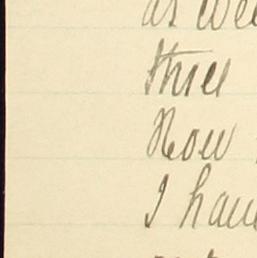 as wee
three
Now
I have